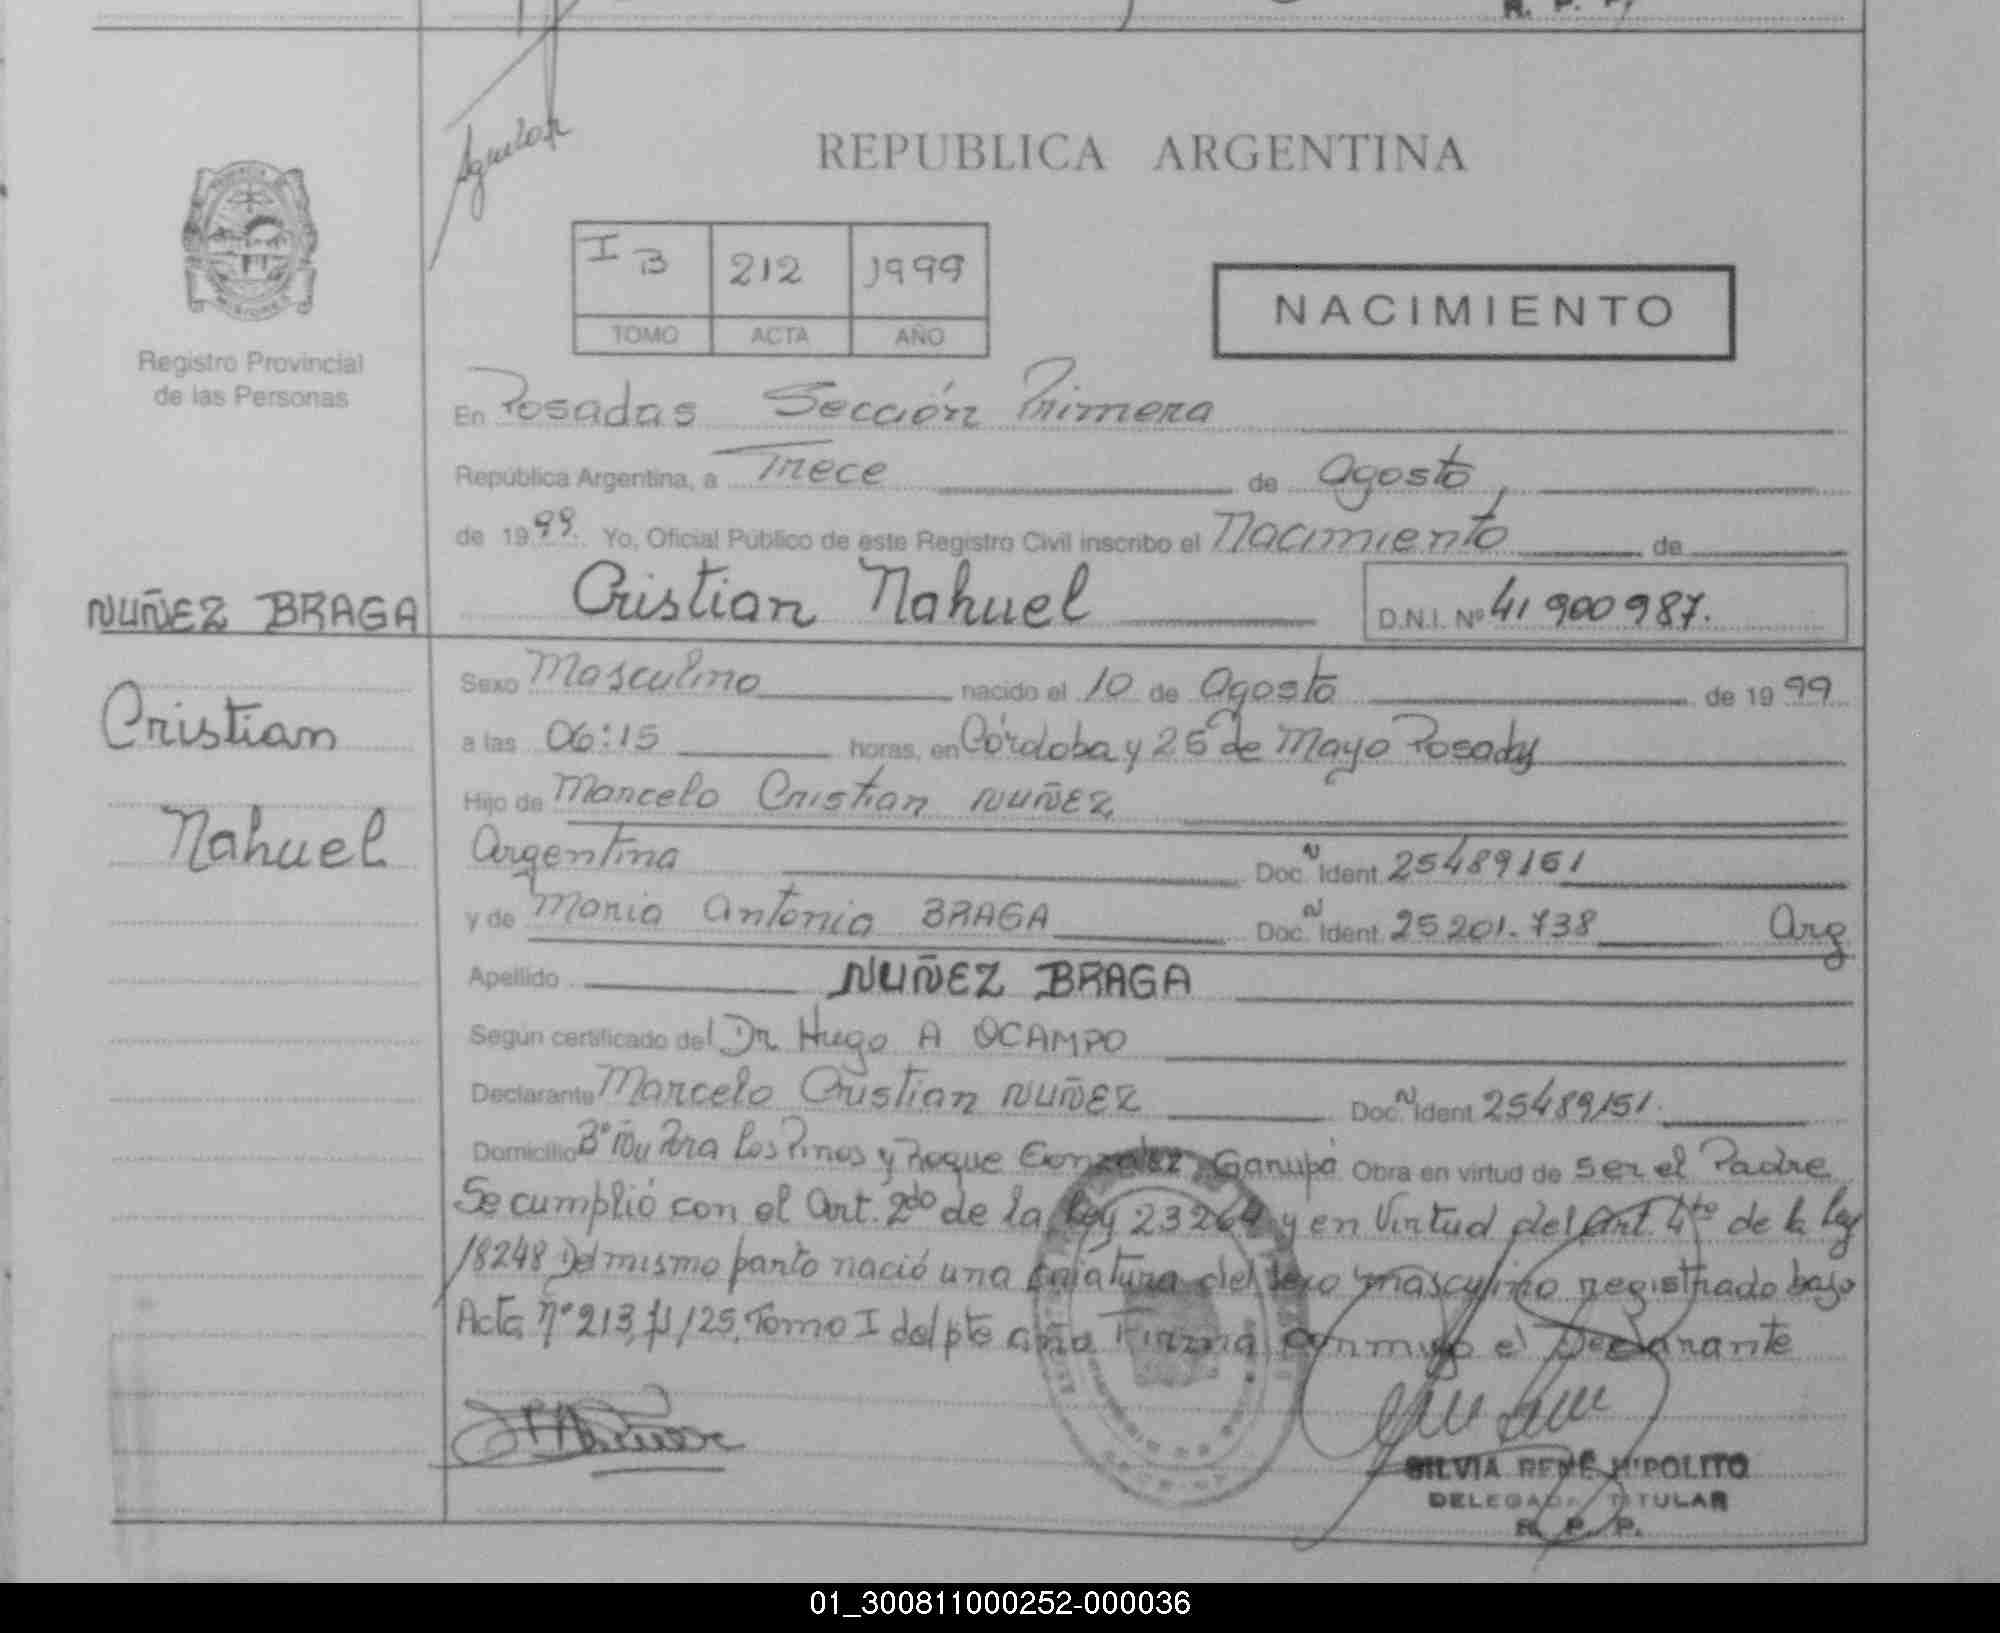 R. P. P.
Aguilar
REPUBLICA ARGENTINA
I B 212 1999
TOMO ACTA AÑO
NACIMIENTO
Registro Provincial
de las Personas
En Posadas Sección Primera
República Argentina, a Trece de Agosto,
de 1999. Yo, Oficial Público de este Registro Civil inscribo el Nacimiento de
NUÑEZ BRAGA
Cristian Nahuel D.N.I. Nº 41 900 987.
Cristian
Nahuel
Sexo Masculino nacido el 10 de Agosto de 1999
a las 06:15 horas, en Córdoba y 25 de Mayo Posadas
Hijo de Marcelo Cristian NUÑEZ
Argentina Doc. N Ident. 25489151
y de Maria Antonia BRAGA Doc. N Ident. 25201.738 Arg
Apellido NUÑEZ BRAGA
Según certificado del Dr Hugo A OCAMPO
Declarante Marcelo Cristian NUÑEZ Doc. N Ident. 25489151.
Domicilio Bº Ñu Pora Los Pinos y Roque Gonzalez Garupá Obra en virtud de ser el Padre
Se cumplió con el Art. 2do de la Ley 23264 y en Virtud del Art. 4to de la Ley
18248 Del mismo parto nació una criatura del sexo masculino registrado bajo
Acta nº 213, fº/25, Tomo I del pte año Firma conmigo el Declarante
SILVIA RENÉ HIPOLITO
DELEGADA TITULAR
R. P. P.
01_300811000252-000036